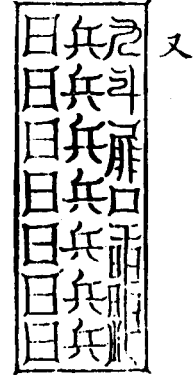 又
斗口
兵兵兵兵兵兵兵
日日日日日日日